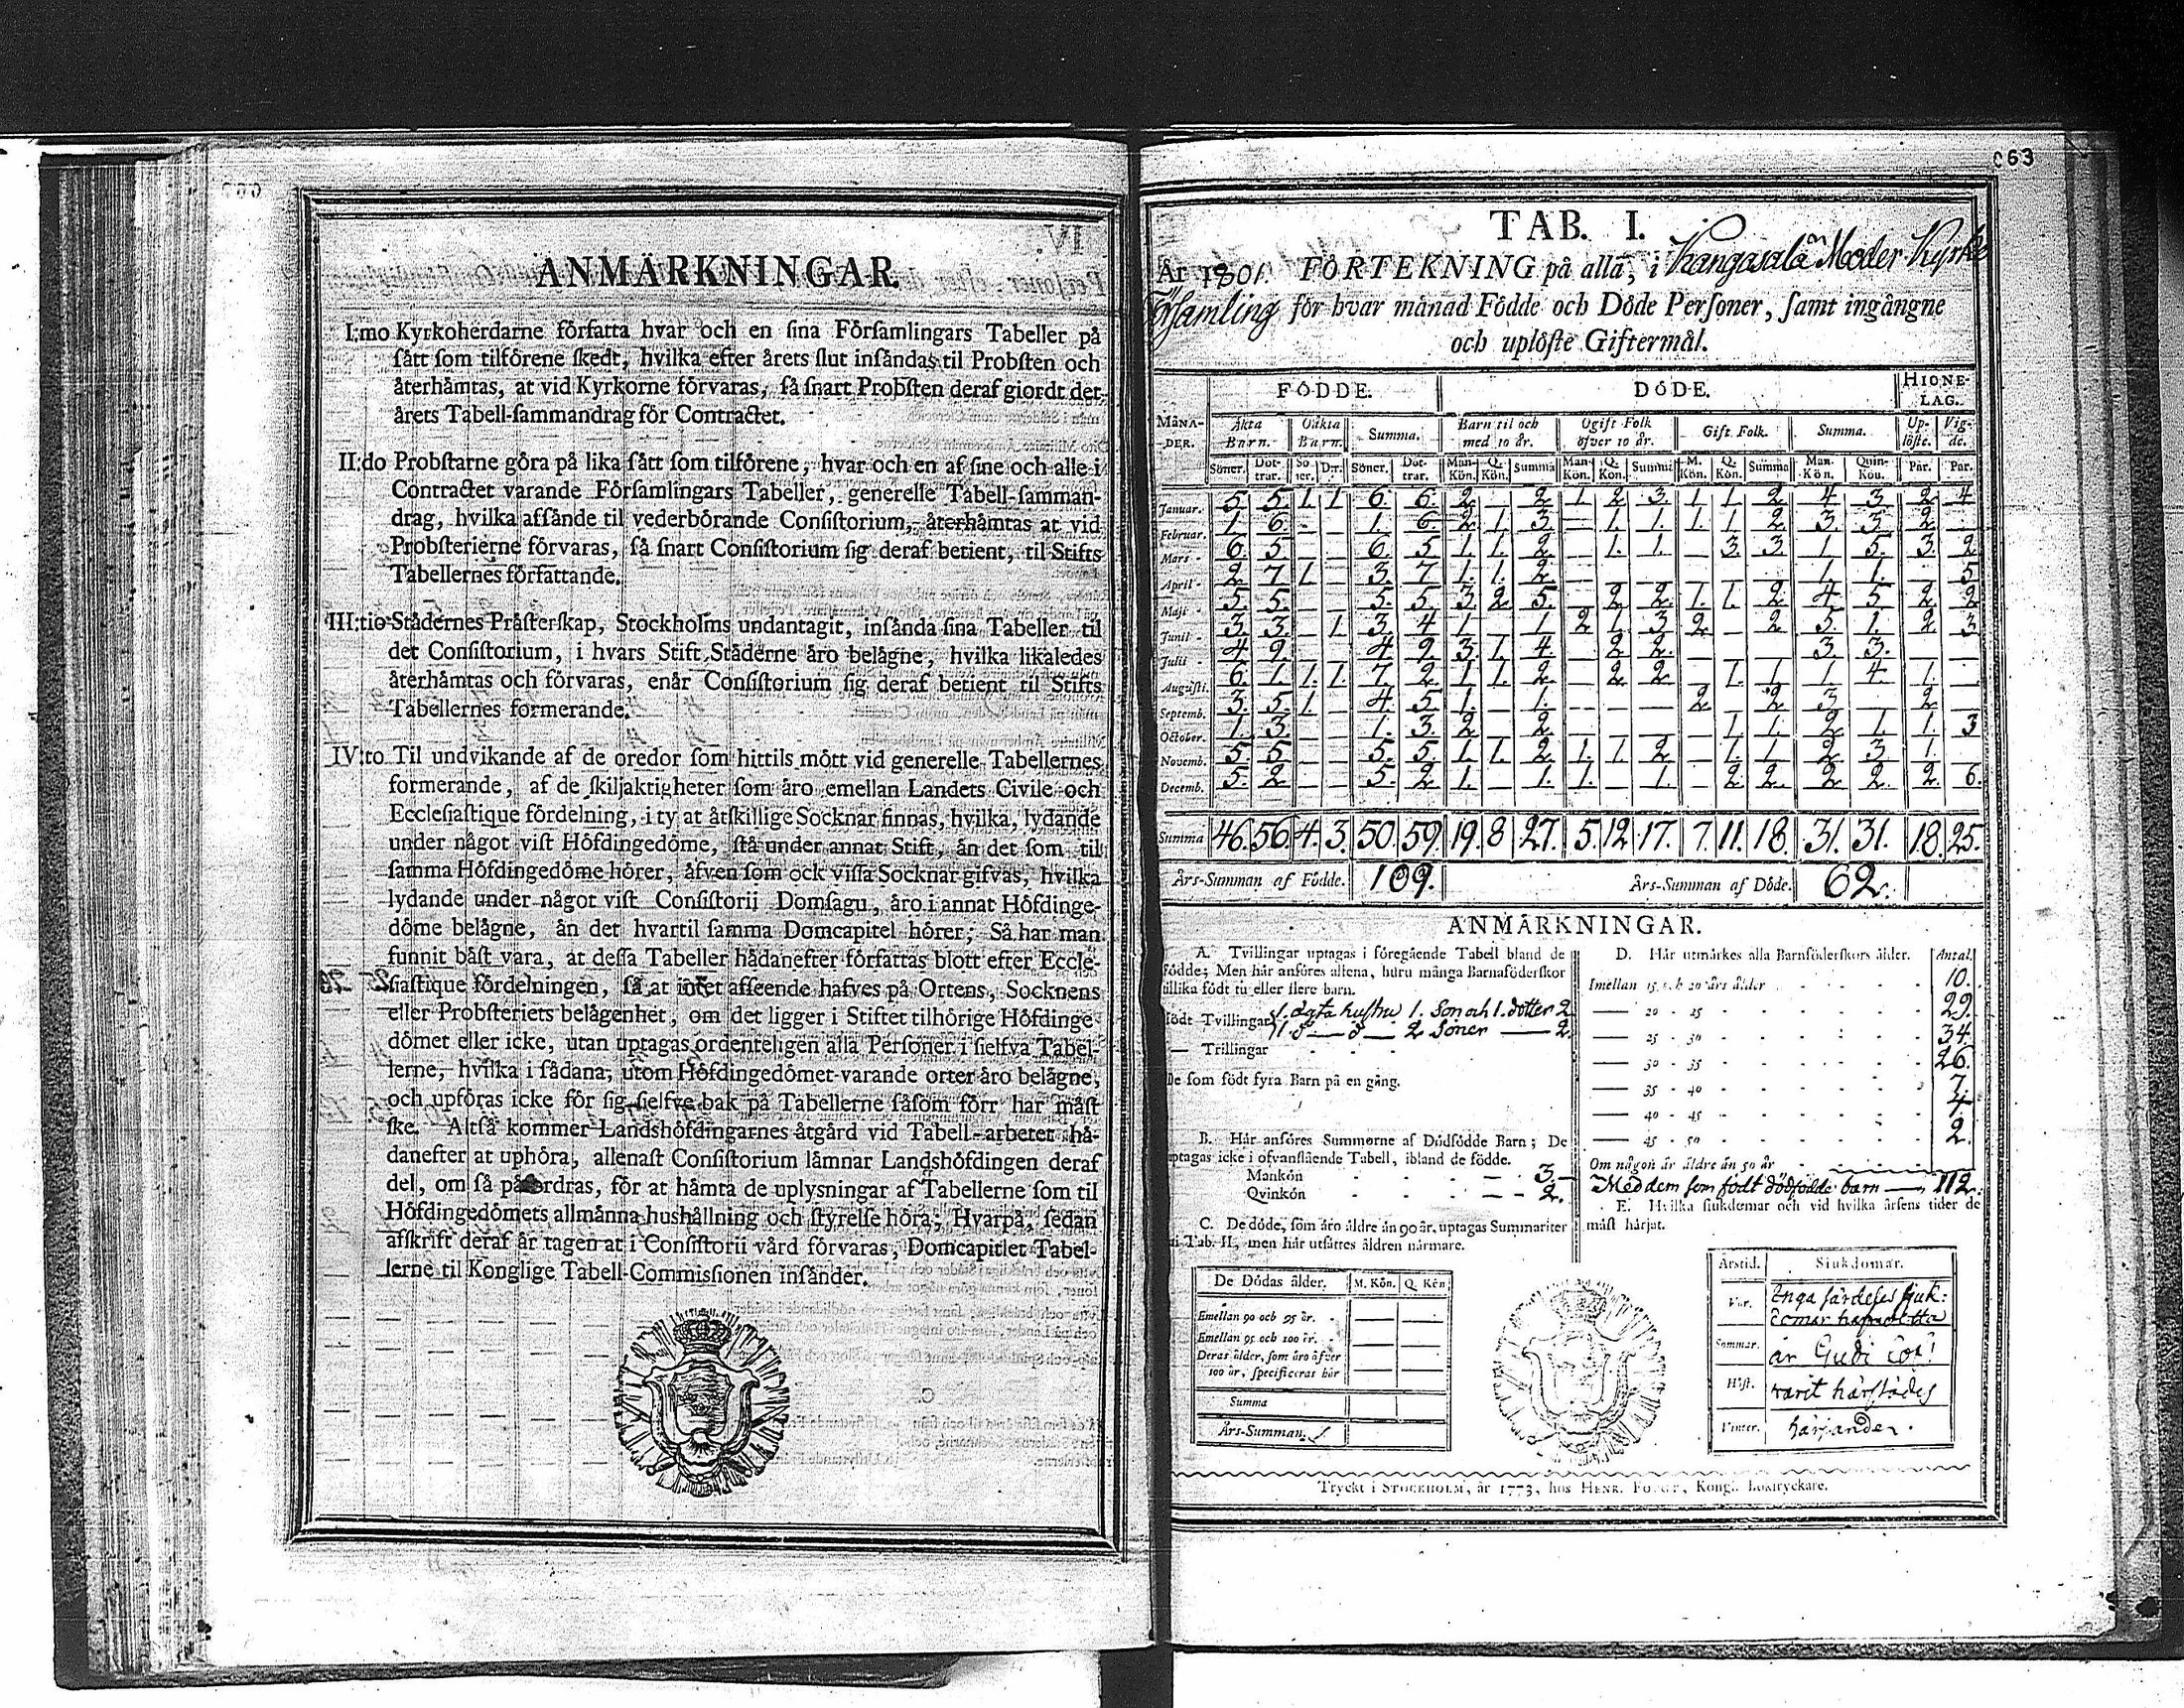 ANMÄRKNINGAR.
I:mo Kyrkoherdarne författa hvar och en sina Församlingars Tabeller på
sått som tilförene skedt, hvilka efter årets slut insåndas til Probsten och
återhåmtas, at vid Kyrkorne förvaras, så snart Probsten deraf giordt det
årets Tabell-sammandrag för Contractet.
II:do Probstarne göra på lika sått som tilförene, hvar och en af sine och alle i
Contractet varande Församlingars Tabeller, generelle Tabell-samman-
drag, hvilka affånde til vederbörande Consistorium, återhåmtas at vid
Probsterierne förvaras, så snart Consistorium sig deraf betient, til Stifts
Tabellernes författande.
III:tio Städernes Pråsterskap, Stockholms undantagit, insånda sina Tabeller til
det Consistorium, i hvars Stift Ståderne åro belågne, hvilka likaledes
återhåmtas och förvaras, enår Consistorium sig deraf betient til Stifts
Tabellernes formerande.
IV:to Til undvikande af de oredor som hittils mött vid generelle Tabellernes
formerande, af de skiljaktigheter som åro emellan Landets Civile och
Ecclesiastique fördelning, i ty at åtskillige Socknar finnas, hvilka, lydande
under något vist Höfdingedöme, stå under annat Stift, ån det som til
samma Höfdingedöme hörer, åfven som ock vissa Socknar gifvas, hvilka
lydande under något vist Consistorii Domsagu, åro i annat Höfdinge-
döme belågne, ån det hvartil samma Domcapitel hörer; Så har man
funnit båst vara, at dessa Tabeller hådanefter författas blott efter Eccle-
siastique fördelningen, så at intet afseende hafves på Ortens, Socknens
eller Probsteriets belågenhet, om det ligger i Stiftet tilhörige Höfdinge-
dömet eller icke, utan uptagas ordenteligen alla Personer i sielfva Tabel-
lerne, hvilka i sådana, utom Höfdingedömet varande orter åro belågne,
och upföras icke för sig sielfve bak på Tabellerne såsom förr har måst
ske. Altså kommer Landshöfdingarnes åtgård vid Tabell-arbetet hå-
danefter at uphöra, allenast Consistorium låmnar Landshöfdingen deraf
del, om så påfordras, för at håmta de uplysningar af Tabellerne som til
Höfdingedömets allmånna hushållning och styrelse höra; Hvarpå, sedan
afskrift deraf år tagen at i Consistorii vård förvaras, Domcapitlet Tabel-
lerne til Konglige Tabell-Commissionen insånder.
063
TAB. I.
År 1801. FÖRTEKNING på alla, i Kangasala Moder Kyrko
församling för hvar månad Födde och Döde Personer, samt ingångne
och uplöste Giftermål.
FÖDDE. DÖDE. HIONE-LAG.
MÅNA-DER. Åkta Barn. Oåkta Barn. Summa. Barn til och med 10 år. Ogift Folk öfver 10 år. Gift Folk. Summa. Up-löste. Vig-de.
Söner. Döt-trar. Sö-ner. D:r. Söner. Döt-trar. Man-Kön. Q. Kön. Summa Man-Kön. Q. Kön. Summa M. Kön. Q. Kön. Summa Man-Kön. Quin-Kön. Par. Par.
Januar. 5 5 1 1 6 6 2 — 2 1 2 3 1 1 2 4 3 2 4
Februar. 1 6 — — 1 6 2 1 3 — 1 1 1 1 2 3 3 2 —
Mars 6 5 — — 6 5 1 1 2 — 1 1 — 3 3 1 5 3 2
April 2 7 1 — 3 7 1 1 2 — — — — — — 1 1 — 5
Maji 5 5 — — 5 5 3 2 5 — 2 2 1 1 2 4 5 2 2
Junii 3 3 — 1 3 4 1 — 1 2 1 3 2 — 2 5 1 2 3
Julii 4 9 — — 4 9 3 1 4 — 2 2 — — — 3 3 — —
Augusti. 6 1 1 1 7 2 1 1 2 — 2 2 — 1 1 1 4 1 —
Septemb. 3 5 1 — 4 5 1 — 1 — — — 2 — 2 3 — 2 —
October. 1 3 — — 1 3 2 — 2 — — — — 1 1 2 1 1 3
Novemb. 5 5 — — 5 5 1 1 2 1 1 2 — 1 1 2 3 1 —
Decemb. 5 2 — — 5 2 1 — 1 1 — 1 — 2 2 2 2 2 6
Summa 46 56 4 3 50 59 19 8 27 5 12 17 7 11 18 31 31 18 25
Års-Summan af Födde. 109. Års-Summan af Döde. 62.
ANMÄRKNINGAR.
A. Tvillingar uptagas i föregående Tabell bland de
födde; Men hår anföres allena, huru många Barnaföderskor
tillika födt tu eller flere barn.
födt Tvillingar 1. ägta hustru 1. Son och 1. dotter 2
1. d — d — 2 Söner — 2.
— Trillingar
De som födt fyra Barn på en gång.
B. Hår anföres Summorne af Dödfödde Barn; De
uptagas icke i ofvanstående Tabell, ibland de födde.
Mankön 3.
Qvinkön 2.
C. De döde, som åro åldre ån 90 år, uptagas Summariter
i Tab. II, men hår utsåttes åldren nårmare.
De Dödas ålder. M. Kön. Q. Kön
Emellan 90 och 95 år. — —
Emellan 95 och 100 år. — —
Deras ålder, som åro öfver
100 år, specificeras hår — —
Summa
Års-Summan.
D. Hår utmårkes alla Barnföderskors ålder. Antal.
Imellan 15 och 20 års ålder 10.
— 20 - 25 29.
— 25 - 30 34.
— 30 - 35 26.
— 35 - 40 7.
— 40 - 45 4.
— 45 - 50 2.
Om någon år åldre ån 50 år
Med dem som födt dödfödde barn — 112.
E. Hvilka siukdomar och vid hvilka årsens tider de
måst hårjat.
Årstid. Siukdomar.
Vår. Inga särdeles sjuk-
domar hafva detta
Sommar. år Gudi lof!
Höst. varit härstädes
Vinter. härjander.
Tryckt i STOCKHOLM, år 1773, hos HENR. FOUGT, Kongl. Boktryckare.